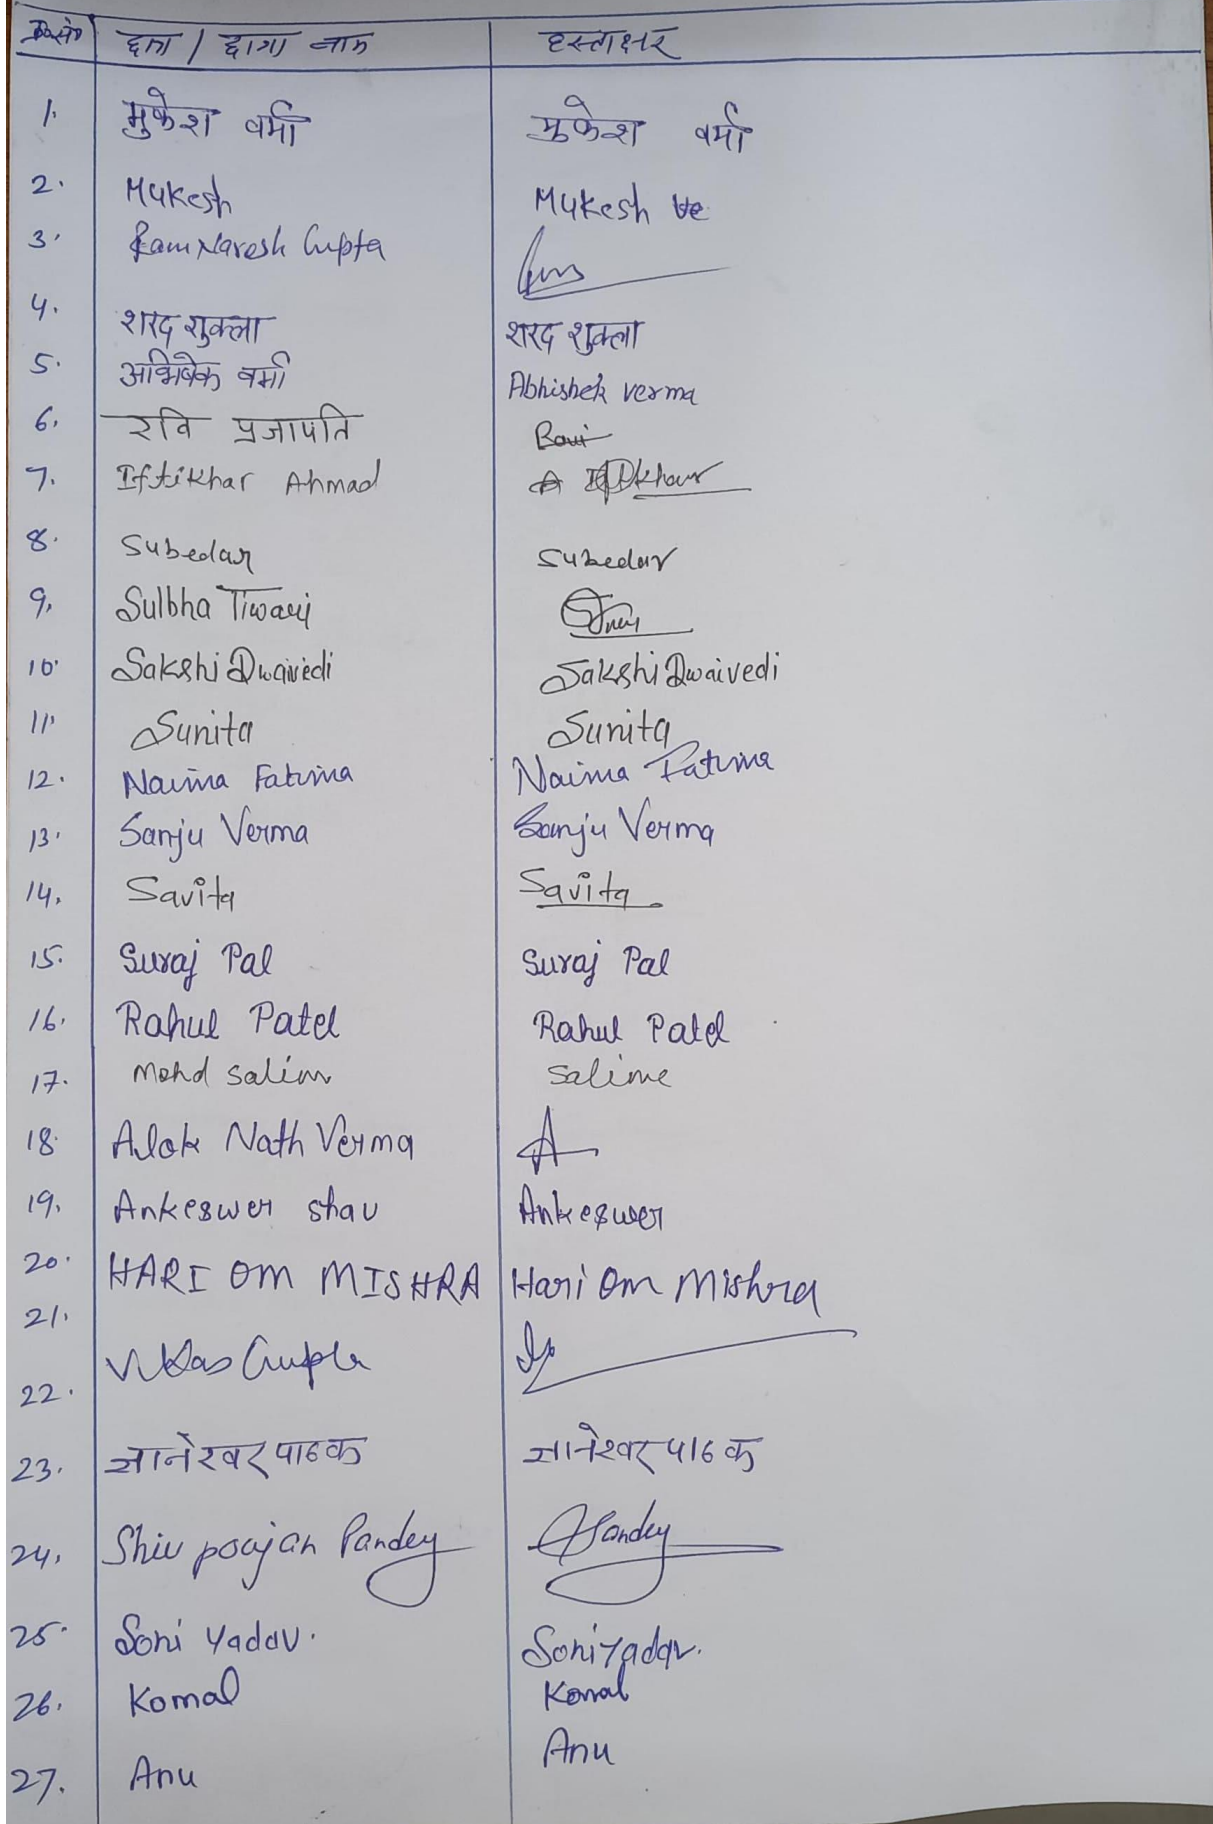 क्र०सं० छात्र / छात्रा नाम हस्ताक्षर
1. मुकेश वर्मा मुकेश वर्मा
2. Mukesh Mukesh Ve
3. Ram Naresh Gupta
4. शरद शुक्ला शरद शुक्ला
5. अभिषेक वर्मा Abhishek verma
6. रवि प्रजापति Ravi
7. Iftikhar Ahmad Iftikhar
8. Subedar Subedar
9. Sulbha Tiwari
10. Sakshi Dwaivedi Sakshi Dwaivedi
11. Sunita Sunita
12. Naima Fatima Naima Fatima
13. Sanju Verma Sanju Verma
14. Savita Savita
15. Suraj Pal Suraj Pal
16. Rahul Patel Rahul Patel
17. Mohd salim salime
18. Alok Nath Verma A
19. Ankeswer shau Ankeswer
20. HARI OM MISHRA Hari Om Mishra
21.
Vikas Gupta
22.
23. ज्ञानेश्वर पाठक ज्ञानेश्वर पाठक
24. Shiv poojan Pandey Pandey
25. Soni Yadav. Soni Yadav.
26. Komal Komal
27. Anu Anu